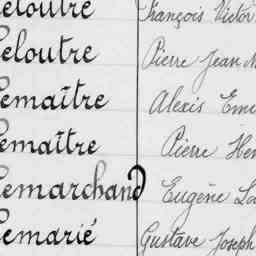 eloutre François Victor
eloutre Pierre Jean
emaître Alexis
emaître Pierre
emarchand Eugène
emarié Gustave Joseph